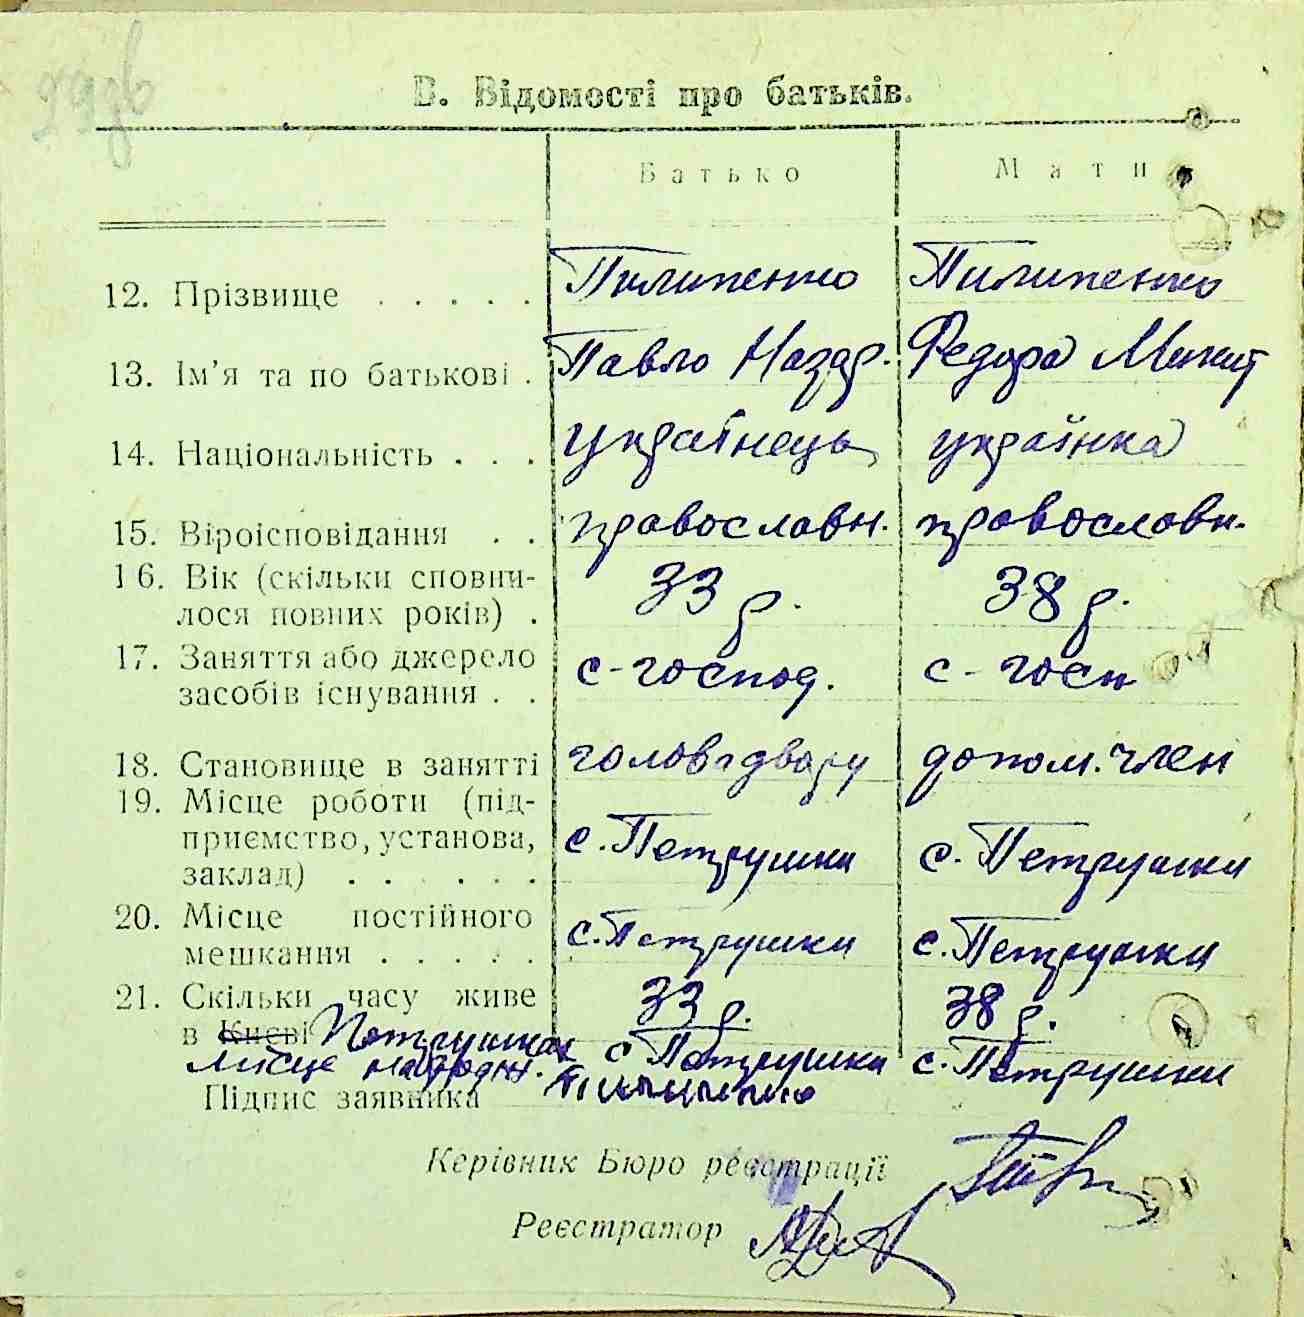 В. Відомості про батьків.
Батько Мати
12. Прізвище . . . . . Пилипенко Пилипенко
13. Ім'я та по батькові . Павло Назар. Федора Микит
14. Національність . . . Українець українка
15. Віроісповідання . . православн. православн.
16. Вік (скільки сповни-
лося повних років) . 33 р. 38 р.
17. Заняття або джерело
засобів існування . . с-господ. с-госп
18. Становище в занятті голова двору допом. член
19. Місце роботи (під-
приємство, установа,
заклад) . . . . . . с. Петрушки с. Петрушки
20. Місце постійного
мешкання . . . . . с. Петрушки с. Петрушки
21. Скільки часу живе
в Києві Петрушках 33 р. 38 р.
місце народж. с Петрушки с. Петрушки
Підпис заявника Пилипенко
Керівник Бюро реєстрації
Реєстратор